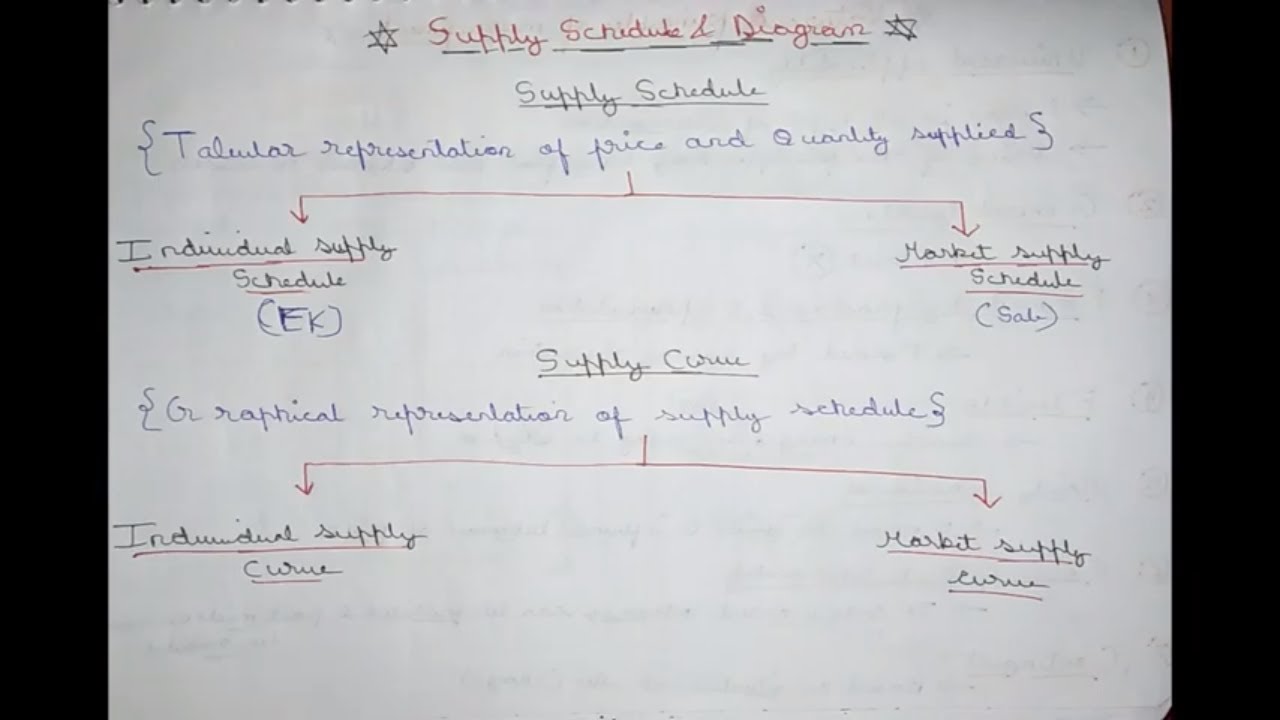 Supply Schedule & Diagram
Supply Schedule
{Tabular representation of price and Quantity supplied}
Individual supply
Schedule
(EK)
Market supply
Schedule
(Sab)
Supply Curve
{Graphical representation of supply schedule}
Individual supply
Curve
Market supply
curve